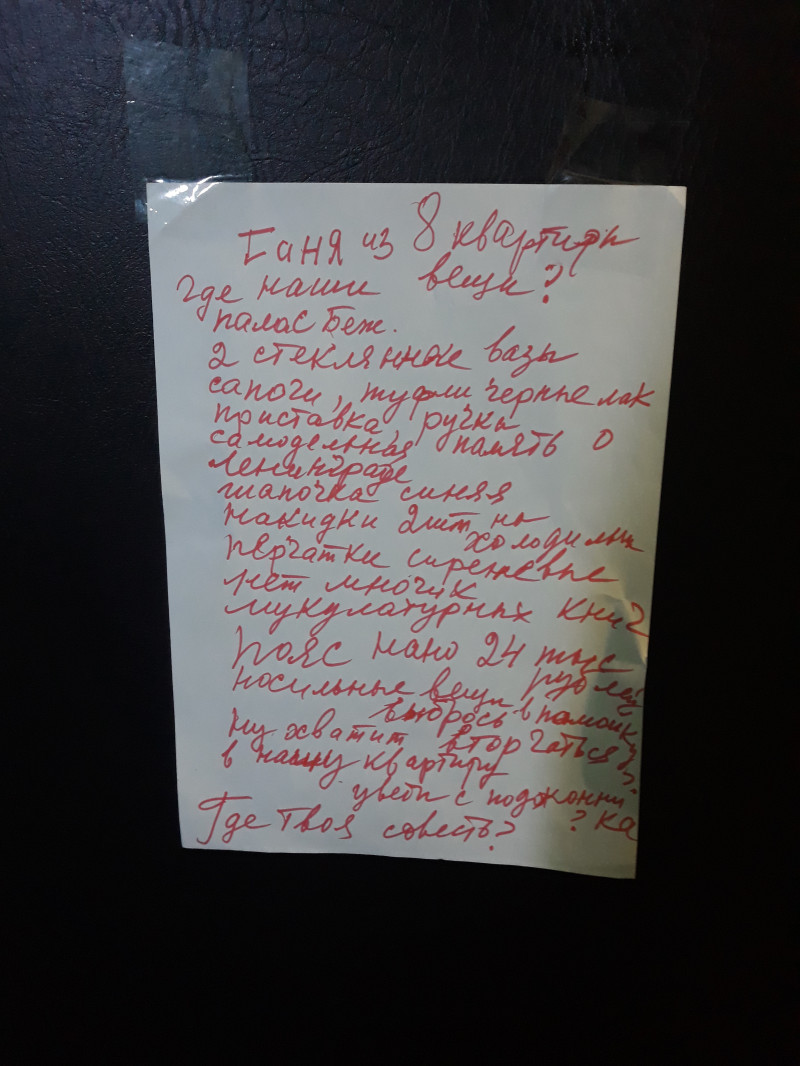 Таня из 8 квартиры
где наши вещи?
палас беж.
2 стеклянные вазы
сапоги, туфли черные лак
приставка, ручка
самодельная память о
Ленинграде
шапочка синяя
накидки 2шт на
холодильн
перчатки сиреневые
нет многих
мукулатурных книг
пояс нано 24 тыс
рублей
носильные вещи
выбрось в помойку
Ну хватит вторгаться
в нашу квартиру
?
цветы с подоконни
ка
Где твоя совесть? ?